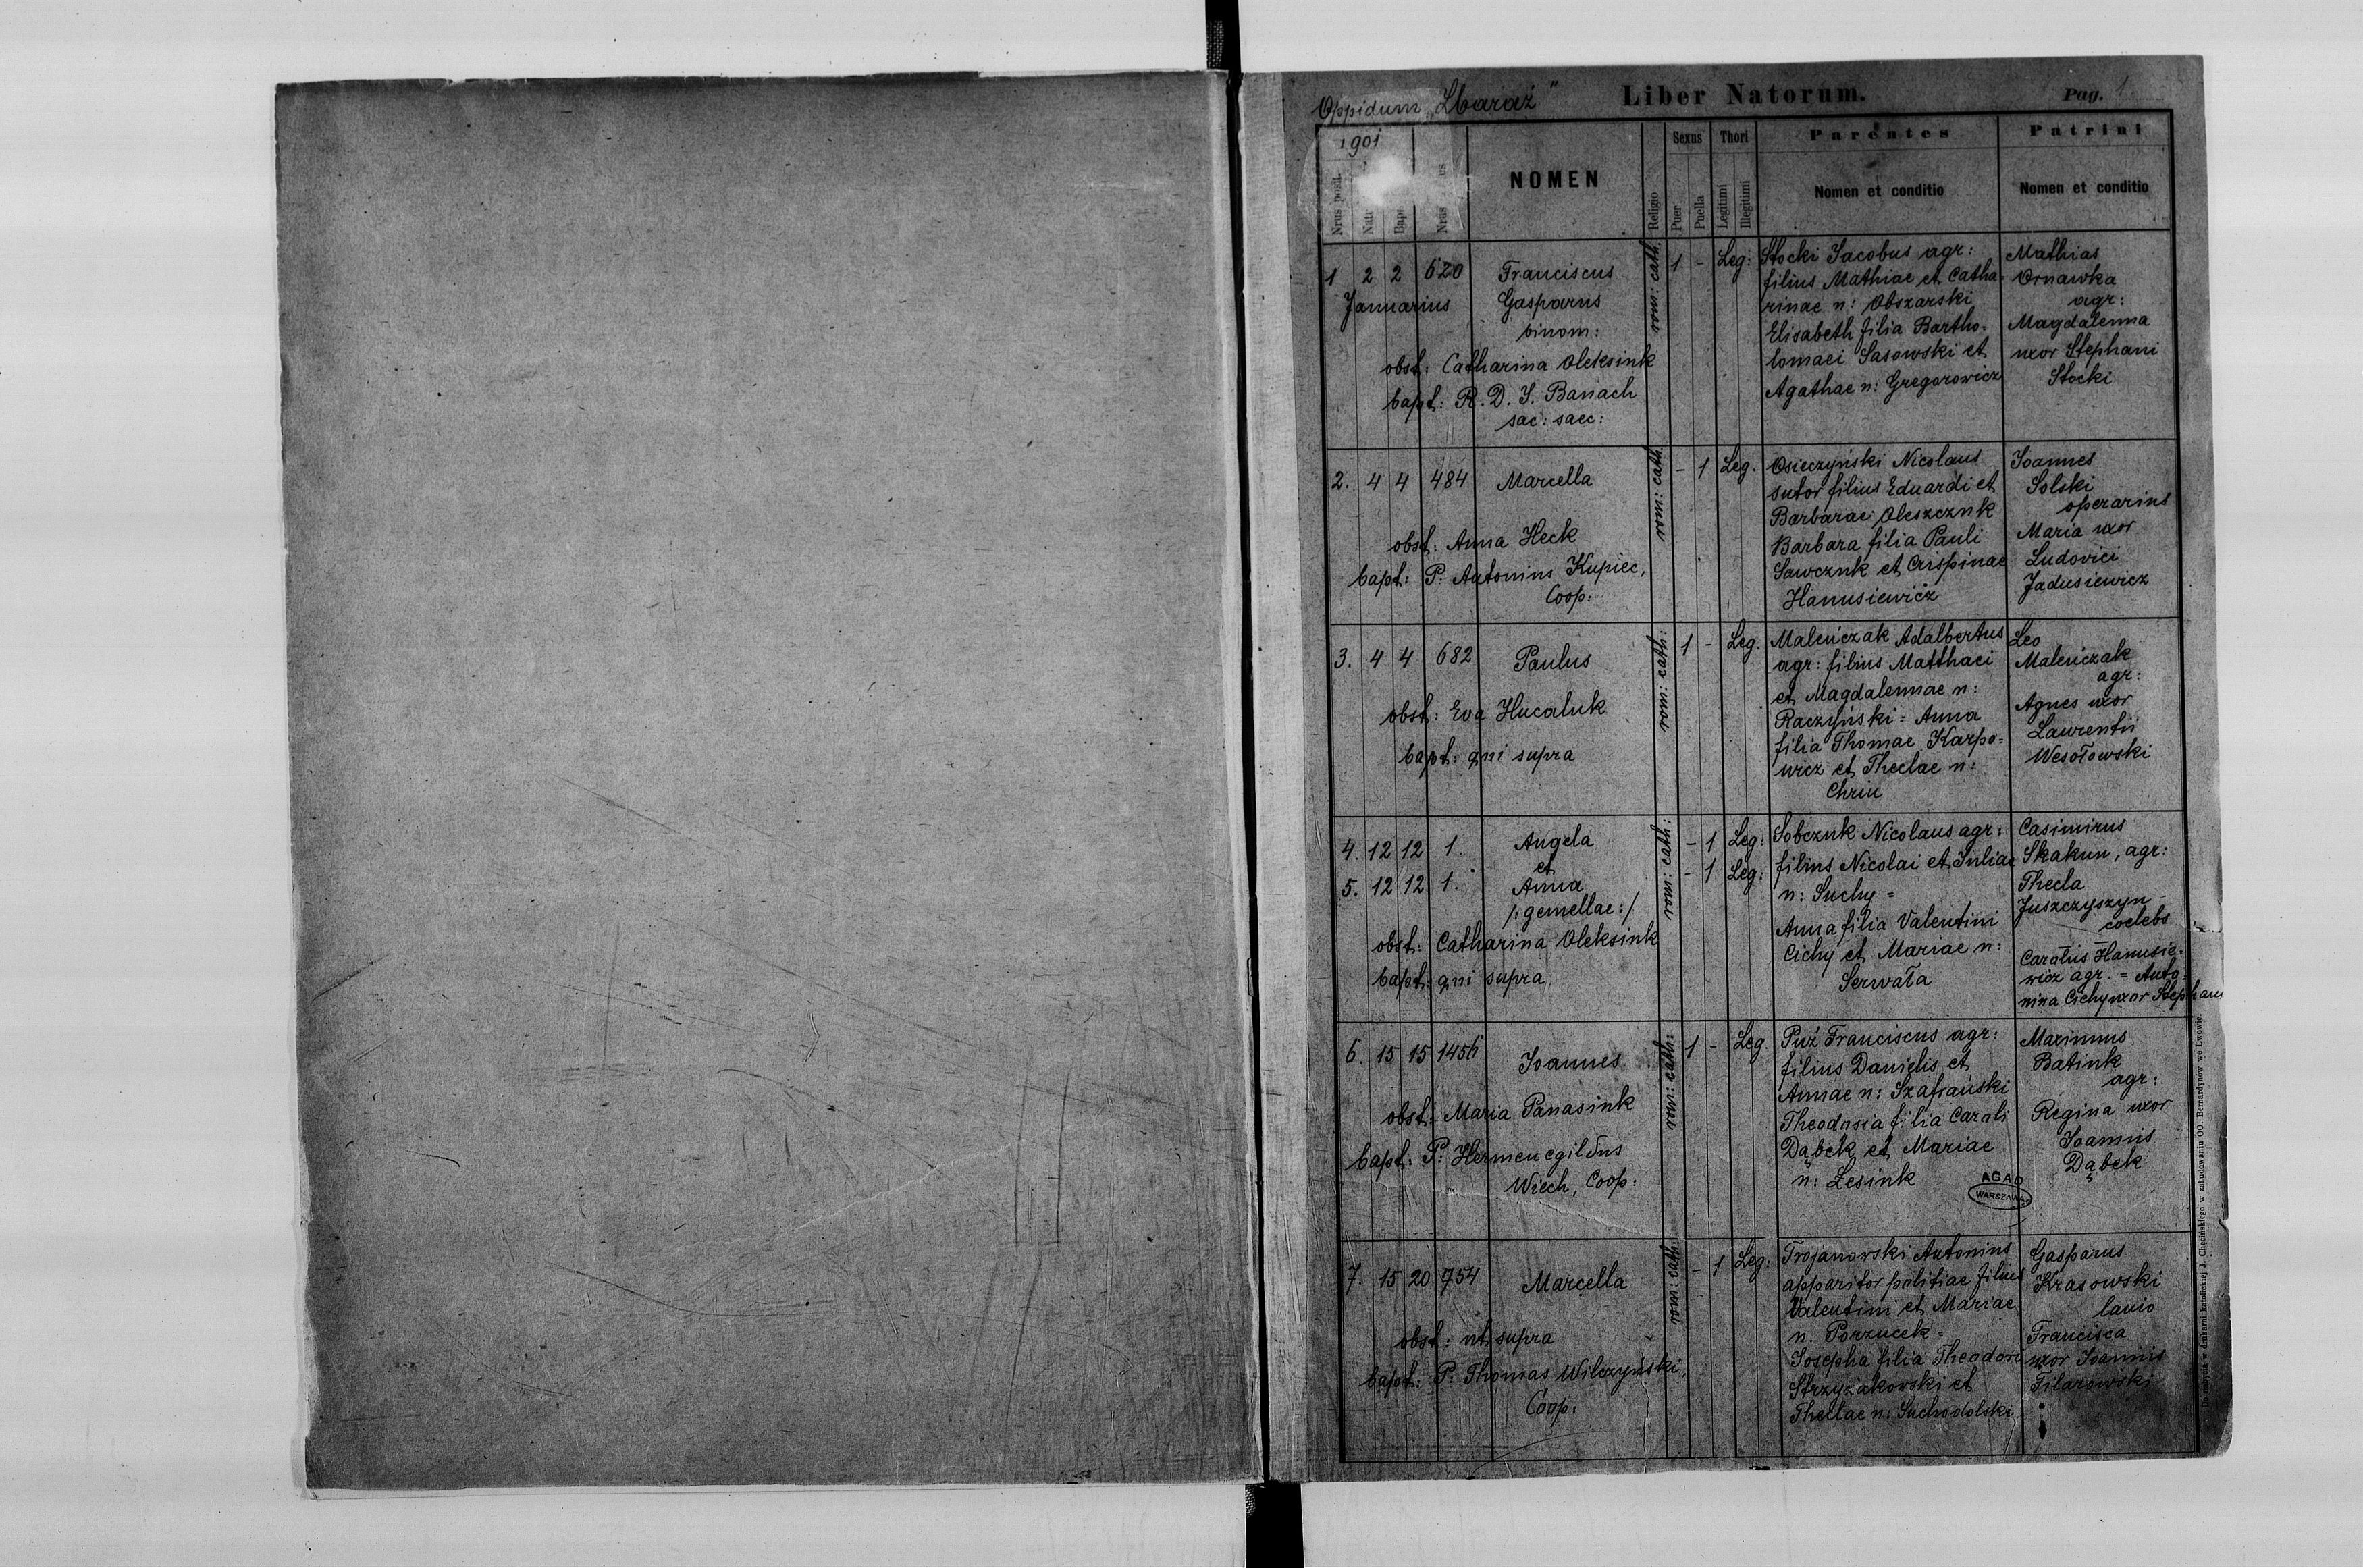 Oppidum „Zbaraż"
Liber Natorum.
Pag. 1
1901
Nrus posit.
NOMEN
Religio
Sexus
Puer
Puella
Thori
Legitimi
Illegitimi
Parentes
Nomen et conditio
Patrini
Nomen et conditio
1 2 2 620 Franciscus
Januarius Gasparus
binom:
obst: Catharina Oleksiuk
bapt: R. D. J. Banach
sac: saec:
rom: cath.
1 - Leg:
Stocki Jacobus agr:
filius Mathiae et Catha-
rinae n: Obszarski
Elisabeth filia Bartho-
lomaei Sasowski et
Agathae n: Gregorowicz
Mathias
Ornawka
agr:
Magdalenna
uxor Stephani
Stocki
2. 4 4 484 Marcella
obst: Anna Heck
bapt: P. Antonius Kupiec,
Coop:
rom: cath.
- 1 Leg.
Osieczyński Nicolaus
sutor filius Eduardi et
Barbarae Oleszczuk
Barbara filia Pauli
Sawczuk et Crispinae
Hanusiewicz
Joannes
Solski
operarius
Maria uxor
Ludovici
Jadusiewicz
3. 4 4 682 Paulus
obst: Eva Hucaluk
bapt: qui supra
rom: cath:
1 - Leg.
Maleńczak Adalbertus
agr: filius Matthaei
et Magdalennae n:
Raczyński = Anna
filia Thomae Karpo=
wicz et Theclae n:
Chriu
Leo
Maleńczak
agr:
Agnes uxor
Laurentii
Wesołowski
4. 12 12 1. Angela
et
5. 12 12 1. Anna
/:gemellae:/
obst: Catharina Oleksiuk
bapt: qui supra
rom: cath:
- 1 Leg:
- 1 Leg:
Sobczuk Nicolaus agr:
filius Nicolai et Juliae
n: Suchy =
Anna filia Valentini
Cichy et Mariae n:
Serwała
Casimirus
Skakun, agr:
Thecla
Juszczyszyn
coelebs
Carolus Hanusie-
wicz agr. = Anto-
nina Cichy uxor Stephani
6. 15 15 1456 Joannes
obst: Maria Panasiuk
bapt: P. Hermenegildus
Wiech, Coop:
rom: cath:
1 - Leg.
Puź Franciscus agr:
filius Danielis et
Annae n: Szafrański
Theodosia filia Caroli
Dąbek et Mariae
n: Lesiuk
Maximus
Batiuk
agr:
Regina uxor
Joannis
Dąbek
AGAD
WARSZAWA
7. 15 20 754 Marcella
obst: ut supra
bapt: P. Thomas Wilczyński,
Coop:
rom: cath:
- 1 Leg:
Trojanowski Antonius
apparitor politiae filius
Valentini et Mariae
n. Porzucek =
Josepha filia Theodori
Strzyżakowski et
Theclae n: Suchodolski
Gasparus
Krasowski
lanio
Francisca
uxor Joannis
Filarowski
Do nabycia w drukarni katolickiej J. Chęcińskiego w zabudowaniu OO. Bernardynów we Lwowie.